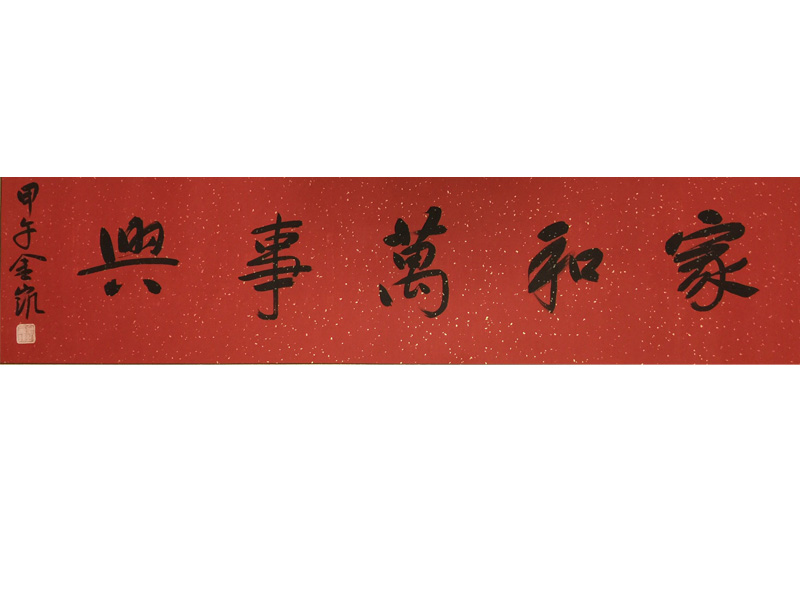 家和萬事興
甲午金嵐